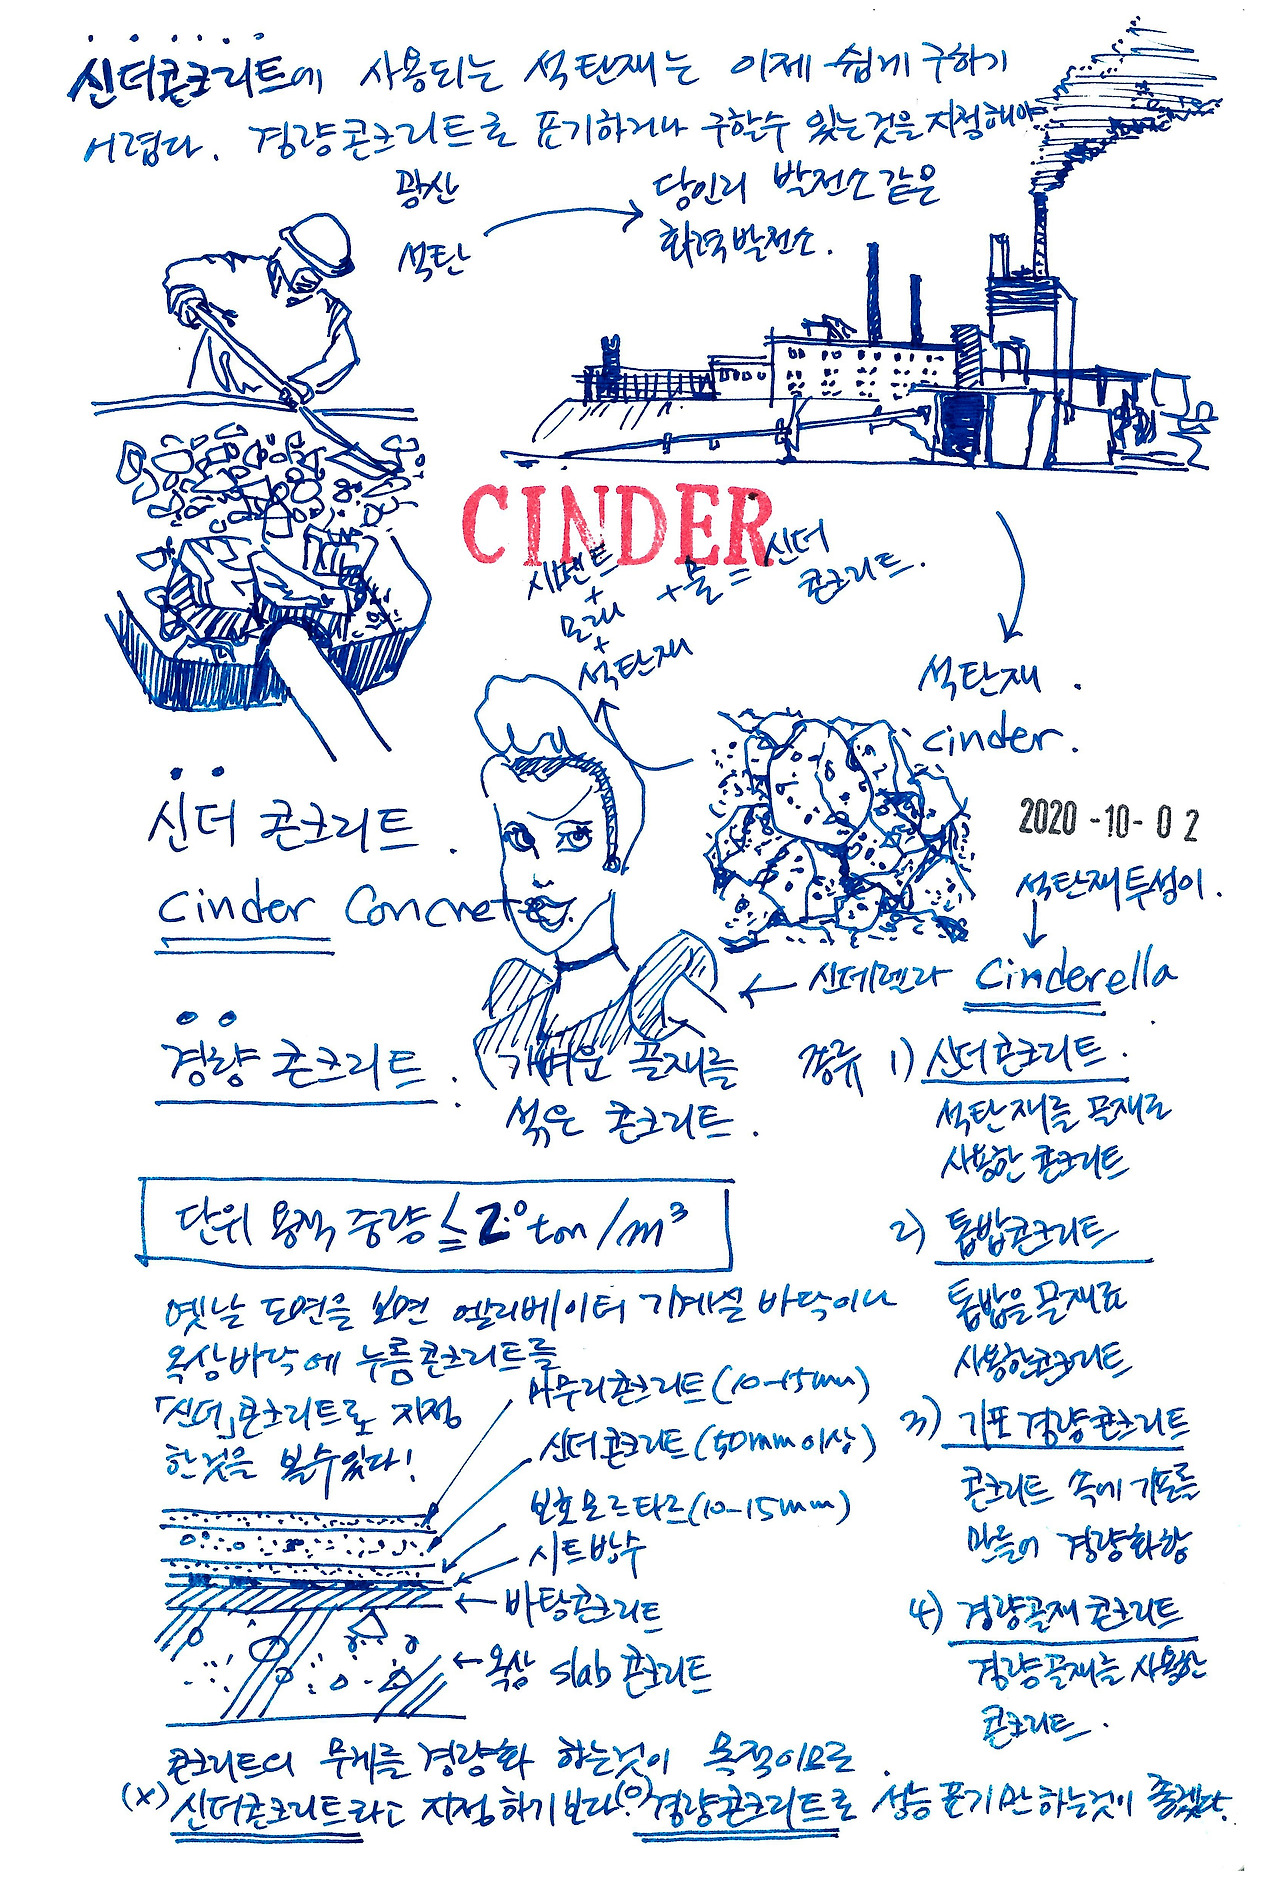 신더콘크리트에 사용되는 석탄재는 이제 쉽게 구하기
어렵다. 경량콘크리트로 표기하거나 구할수 있는것을 지정해야
광산
석탄
당인리 발전소 같은
화력발전소.
CINDER
시멘트
+
모래
+
석탄재
+물 = 신더
콘크리트.
석탄재.
cinder.
신더 콘크리트.
Cinder Concrete
2020-10-02
석탄재투성이.
← 신데렐라 Cinderella
경량 콘크리트. (가벼운 골재를
섞은 콘크리트.
종류 1) 신더콘크리트.
석탄재를 골재로
사용한 콘크리트
2) 톱밥콘크리트
톱밥을 골재로
사용한콘크리트
3) 기포경량콘크리트
콘크리트 속에 기포를
만들어 경량화함
4) 경량골재 콘크리트
경량골재를 사용한
콘크리트.
단위 용적 중량 ≦ 2.0ton/m³
옛날 도면을 보면 엘리베이터 기계실 바닥이나
옥상바닥에 누름콘크리트를
「신더」콘크리트로 지정
한것을 볼수있다!
마무리콘크리트(10-15mm)
신더콘크리트(50mm이상)
보호모르타르(10-15mm)
시트방수
바탕콘크리트
옥상 slab 콘크리트
콘크리트의 무게를 경량화 하는것이 목적이므로
(X) 신더콘크리트라고 지정하기보다. (O) 경량콘크리트로 성능 표기만하는것이 좋겠다.